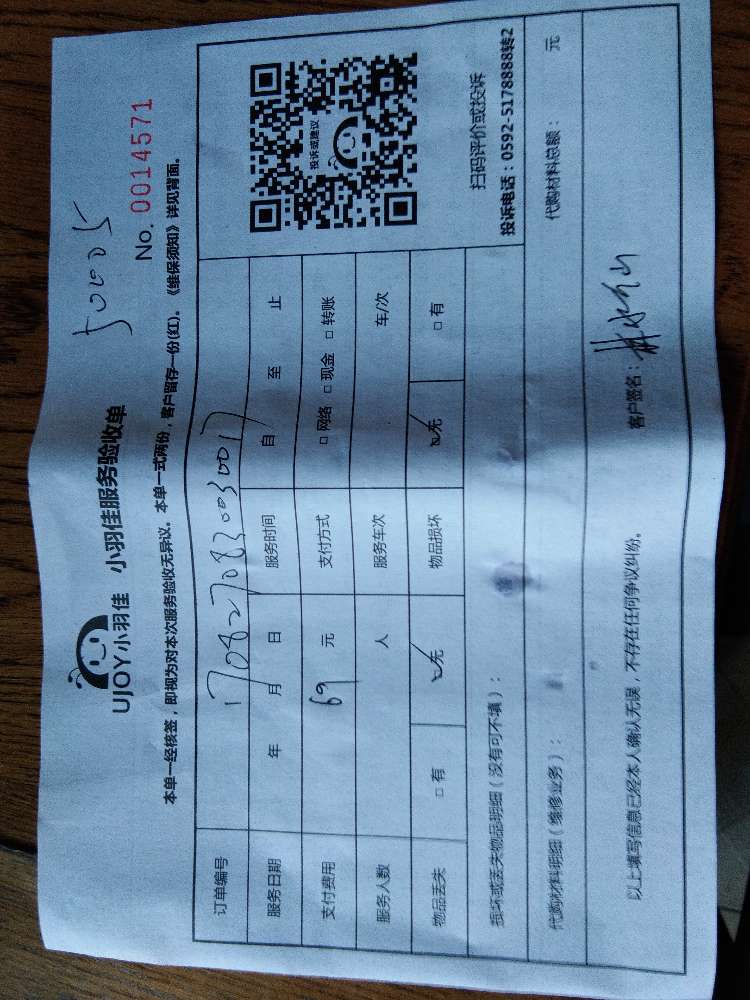 50005
UJOY小羽佳 小羽佳服务验收单
No. 0014571
本单一经核签，即视为对本次服务验收无异议。本单一式两份，客户留存一份(红)。《维保须知》详见背面。
订单编号 1708270830030017
服务日期 年 月 日 服务时间 自 至 止
支付费用 69 元 支付方式 □ 网络 □ 现金 □ 转账
服务人数 人 服务车次 车/次
物品丢失 □ 有 ☑ 无 物品损坏 ☑ 无 □ 有
投诉或建议
扫码评价或投诉
投诉电话：0592-5178888转2
损坏或丢失物品明细（没有可不填）：
代购材料明细（维修业务）： 代购材料总额： 元
以上填写信息已经本人确认无误，不存在任何争议纠纷。 客户签名：